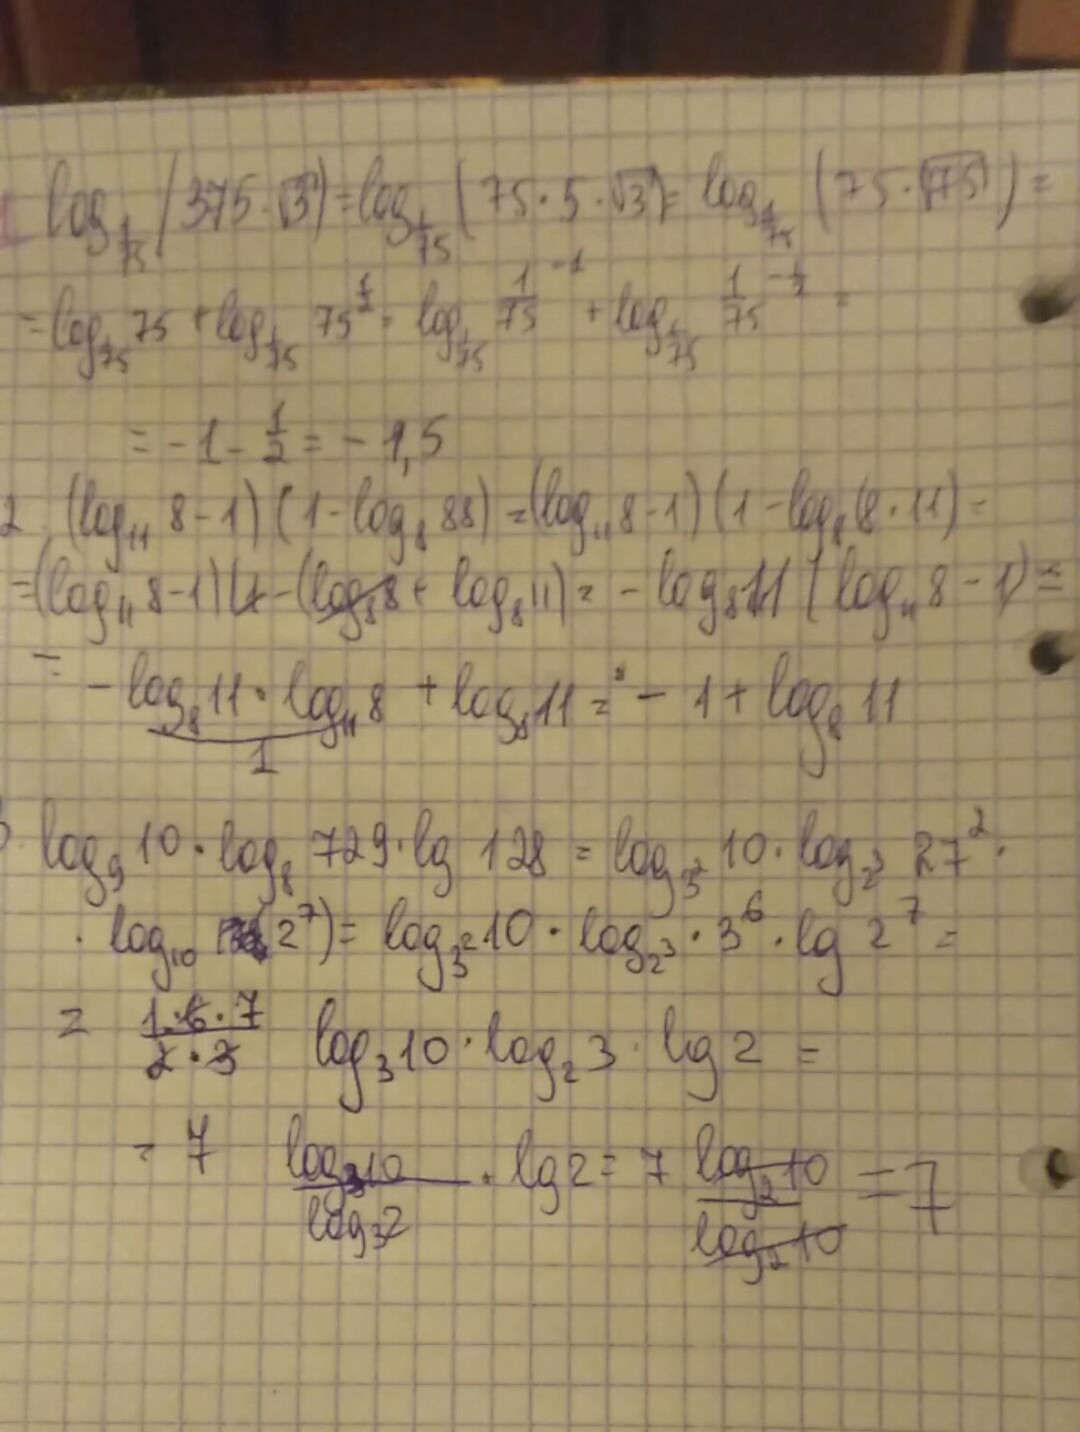 1 log_{1/75} (375·√3) = log_{1/75} (75·5·√3) = log_{1/75} (75·√75) =
= log_{1/75} 75 + log_{1/75} 75^{1/2} = log_{1/75} 1/75^{-1} + log_{1/75} 1/75^{-1/2} =
= -1 - 1/2 = -1,5
2. (log₁₁ 8-1) (1-log₈ 88) = (log₁₁ 8-1) (1-log₈ (8·11) =
= (log₁₁ 8-1) (1-(log₈ 8 + log₈ 11) = -log₈ 11 (log₁₁ 8-1) =
= -log₈ 11 · log₁₁ 8 + log₈ 11 = -1 + log₈ 11
1
3. log₉ 10 · log₈ 729 · lg 128 = log_{3²} 10 · log_{2³} 27² ·
· log₁₀ (2⁷) = log_{3²} 10 · log_{2³} · 3⁶ · lg 2⁷ =
= 1·6·7/2·3 log₃ 10 · log₂ 3 · lg 2 =
= 7 log₃ 10/log₃ 2 · lg 2 = 7 log₂ 10/log₂ 10 = 7